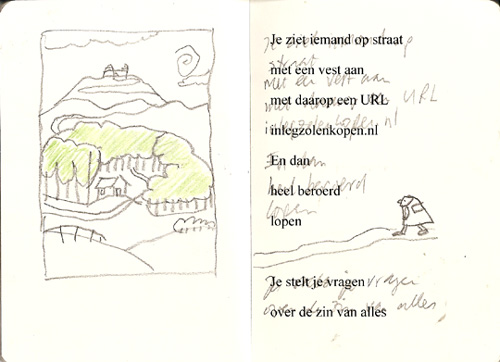 Je ziet iemand op straat
met een vest aan
met daarop een URL
inlegzolenkopen.nl
En dan
heel beroerd
lopen
Je stelt je vragen
over de zin van alles